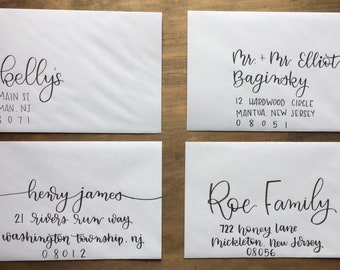 belly's
MAIN ST
MAN, NJ
8071
Mr. + Mr. Elliot
Baginsky
12 HARDWOOD CIRCLE
MANTUA, NEW JERSEY
08051
henry james
21 rivers run way
washington township, nj
08012
Roe Family
722 honey lane
Mickleton, New Jersey
08056